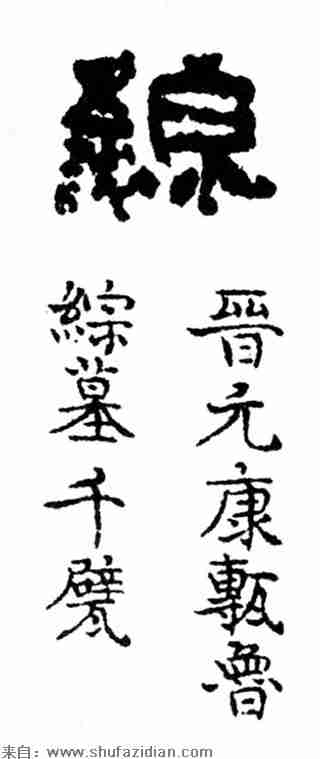 綜
晉元康甎魯
綜墓千甓
来自：www.shufazidian.com